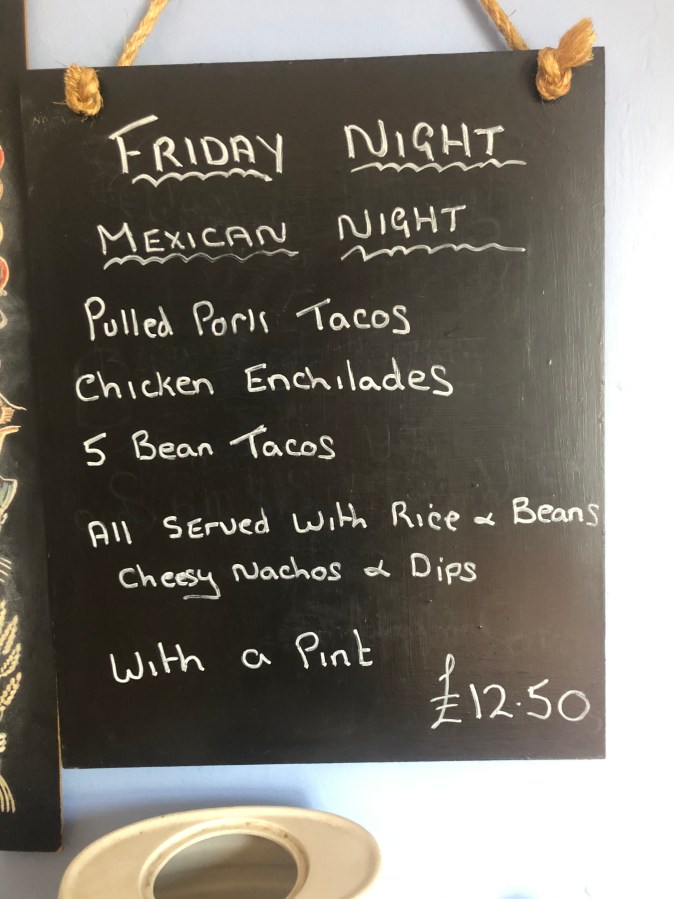 FRIDAY NIGHT
MEXICAN NIGHT
Pulled Pork Tacos
Chicken Enchilades
5 Bean Tacos
All Served With Rice & Beans
Cheesy Nachos & Dips
With a Pint
£12.50